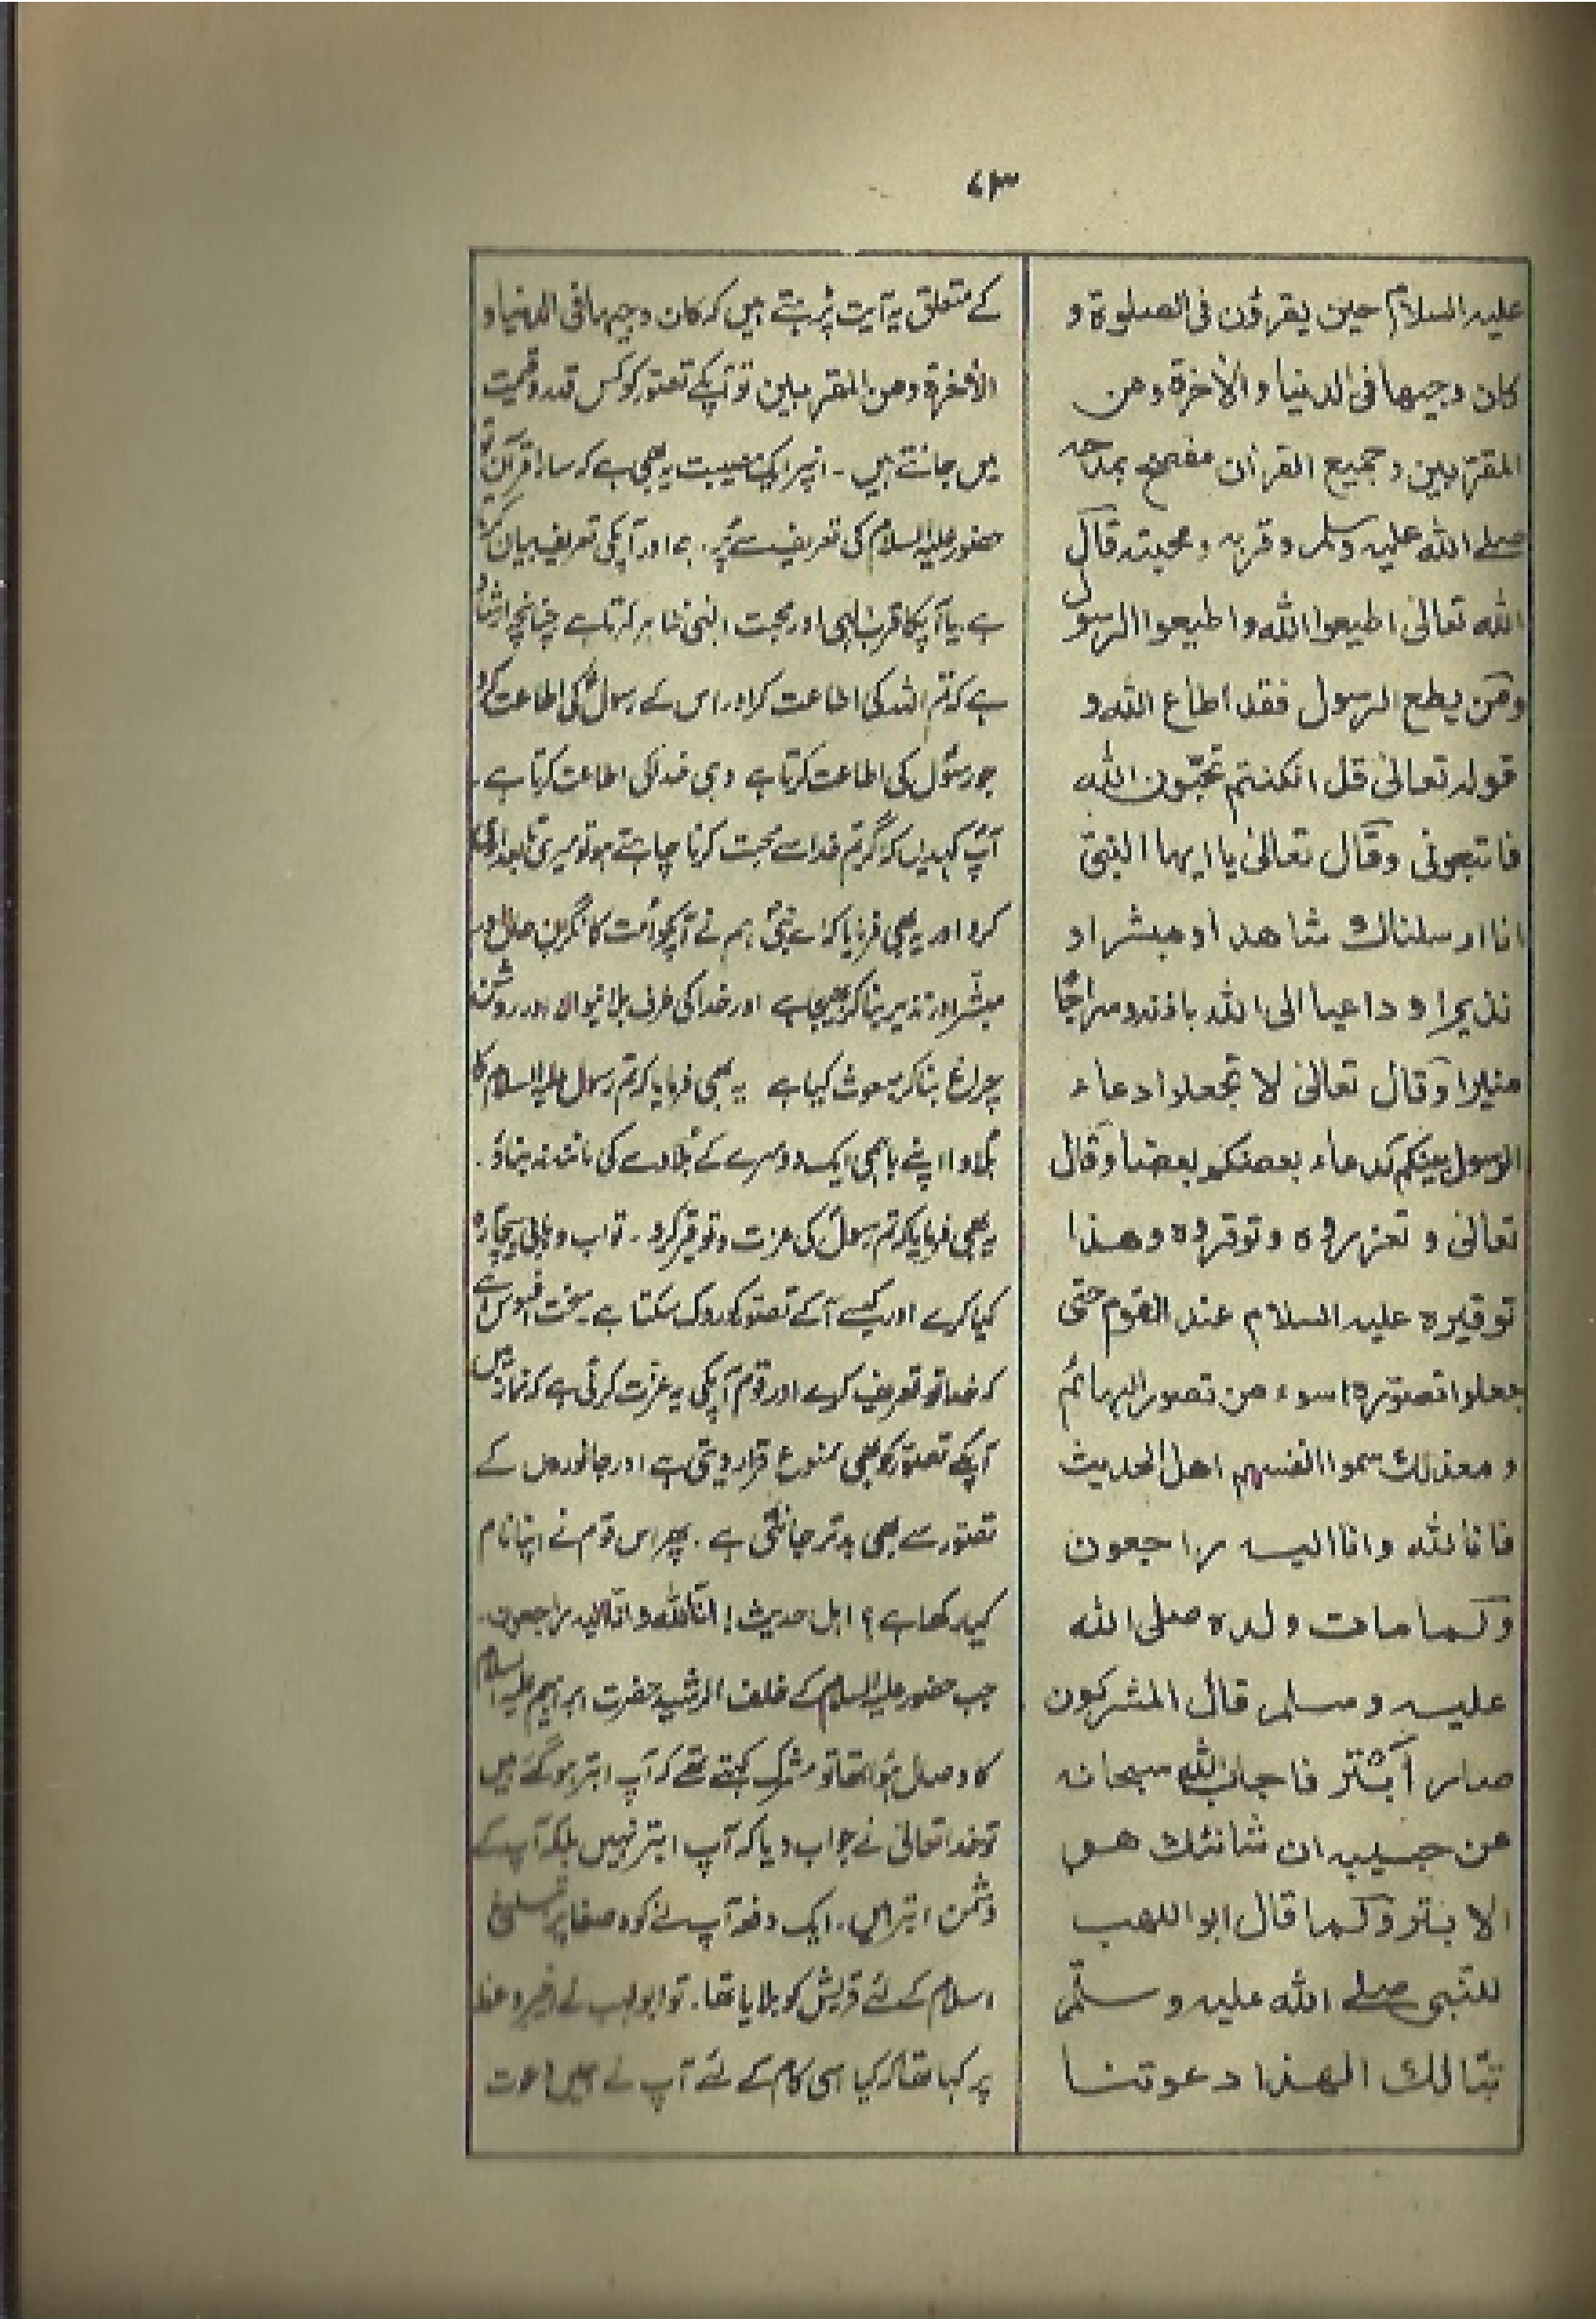 ۷۳
علیہ السلام حین یقرؤن فی الصلوۃ و
کان وجیھا فی الدنیا والاٰخرۃ ومن
المقربین وجمیع القراٰن مفصح بمداحہ
صلے اللہ علیہ وسلم وقربہ ومحبتہ قال
اللہ تعالیٰ اطیعوا اللہ واطیعوا الرسول
ومن یطع الرسول فقد اطاع اللہ و
قولہ تعالیٰ قل انکنتم تحبّون اللہ
فاتبعونی وقال تعالیٰ یا ایھا النبی
انا ارسلناک شاھدا ومبشرا و
نذیرا وداعیا الی اللہ باذنہ وسراجًا
منیرا وقال تعالیٰ لا تجعلوا دعاء
الرسول بینکم کدعاء بعضکم بعضا وقال
تعالیٰ وتعزروہ وتوقروہ وھذا
توقیرہ علیہ السلام عند القوم حتی
جعلوا تصوّرہ اسوء من تصور البہائم
ومعذلک سموا انفسہم اھل الحدیث
فانا للہ وانا الیہ راجعون
وکما مات ولدہ صلی اللہ
علیہ وسلم قال المشرکون
صار أبتر فاجاب اللہ سبحانہ
عن حبیبہ ان شانئک ھو
الابتر وکما قال ابو اللھب
للنّبی صلے اللہ علیہ وسلّم
تبّا لک الھذا دعوتنا
کے متعلق یہ آیت پڑہتے ہیں کہ کان وجیہا فی الدنیا و
الاٰخرۃ ومن المقربین تو آپکے تصور کو کس قدر وقیمت
میں جانتے ہیں ۔ انپر ایک مصیبت یہ بھی ہے کہ سارا قرآن تو
حضور علیہ السلام کی تعریف سے پُر ہے اور آپکی تعریف بیان کرتا
ہے یا آپکا قرب الٰہی اور محبت الٰہی ظاہر کرتا ہے چنانچہ ارشاد
ہے کہ تم اللہ کی اطاعت کرو اور اس کے رسولؐ کی اطاعت کرو
جو رسولؐ کی اطاعت کرتا ہے وہی خدا کی اطاعت کرتا ہے ۔
آپؐ کہدیں کہ اگر تم خدا سے محبت کرنا چاہتے ہو تو میری تابعداری
کرو اور یہ بھی فرمایا کہ اے نبیؐ ! ہم نے آپکو اُمت کا نگران حال اور
مبشّر اور نذیر بنا کر بھیجا ہے اور خدا کی طرف بلانیوالا اور روشن
چراغ بنا کر مبعوث کیا ہے یہ بھی فرمایا کہ تم رسول علیہ السلام کا
بُلاوا اپنے باہمی ایک دوسرے کے بُلاوے کی مانند نہ بناؤ ۔
یہ بھی فرمایا کہ تم رسولؐ کی عزت و توقیر کرو ۔ تو اب وہابی بیچارہ
کیا کرے اور کیسے آپکے تصور کو روک سکتا ہے ۔ سخت افسوس ہے
کہ خدا تو تعریف کرے اور قوم آپکی یہ عزت کرتی ہے کہ نماز میں
آپکے تصوّر کو بھی ممنوع قرار دیتی ہے اور جانوروں کے
تصوّر سے بھی بدتر جانتی ہے ۔ پھر اس قوم نے اپنا نام
کیا رکھا ہے ؟ اہل حدیث ! انا للہ وانا الیہ راجعون ۔
جب حضور علیہ السلام کے خلف الرشید حضرت ابراہیم علیہ السلام
کا وصال ہوا تھا تو مشرک کہتے تھے کہ آپ ابتر ہو گئے ہیں
تو خدا تعالیٰ نے جواب دیا کہ آپ ابتر نہیں بلکہ آپ کے
دشمن ابتر ہیں ۔ ایک دفعہ آپ نے کوہ صفا پر تبلیغ
اسلام کے لئے قریش کو بلایا تھا ۔ تو ابولہب نے اخیر وعظ
پر کہا تھا کہ کیا اسی کام کے لئے آپ نے ہمیں دعوت